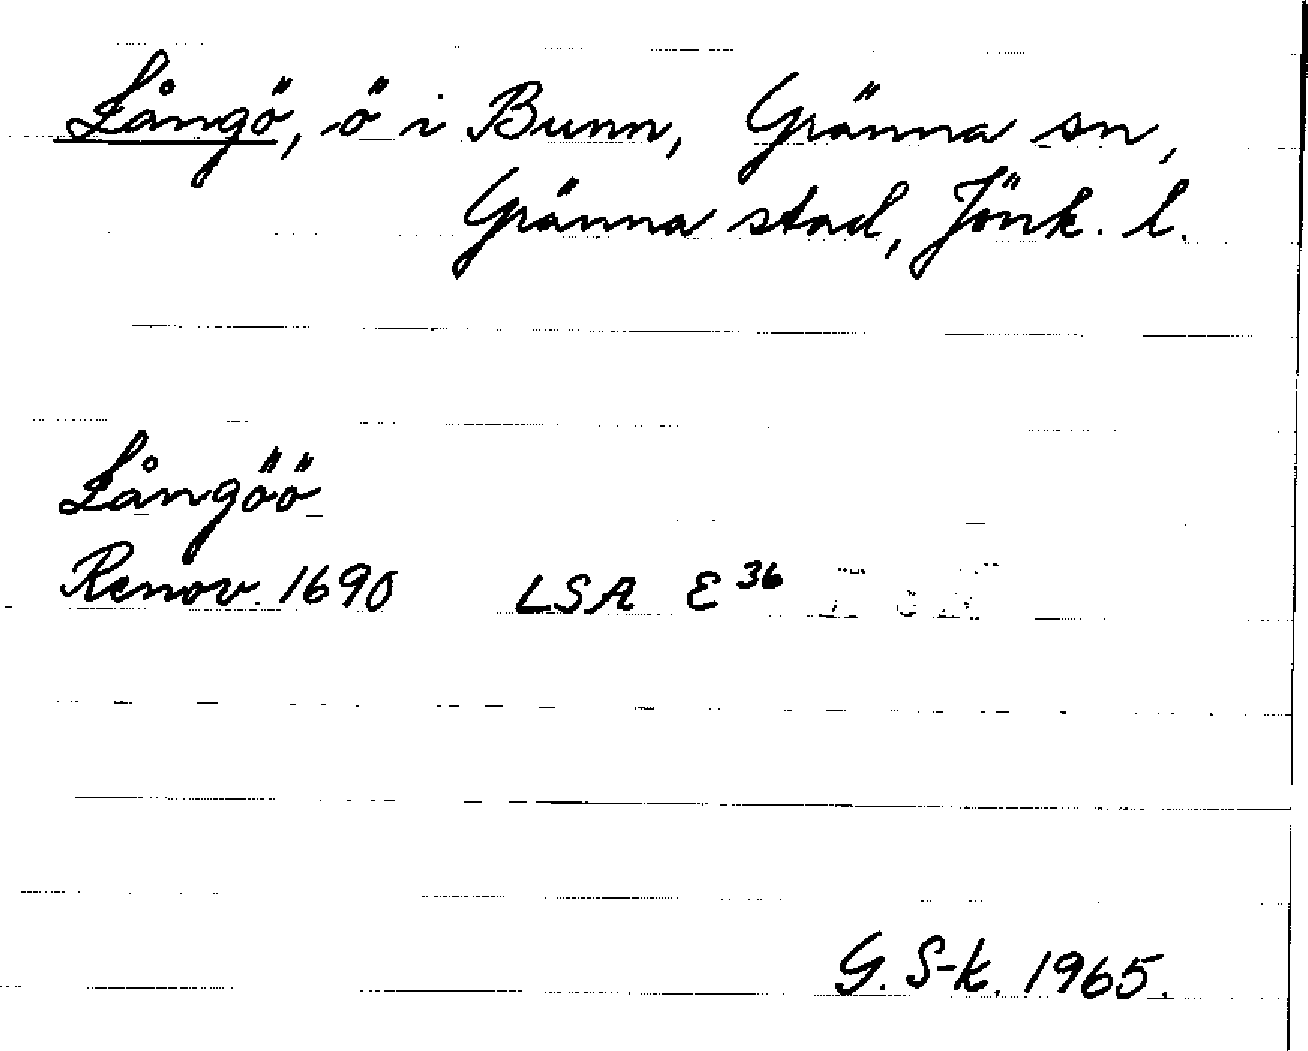 Långö, ö i Bunn, Gränna sn,
Gränna stad, Jönk. l.
Långöö
Renov. 1690 LSA E 36
G. S-k. 1965.